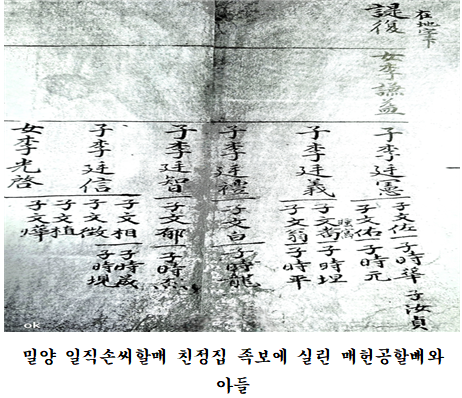 在地字下
復
女李謙益
子李廷憲
子李廷義
子李廷禮
子李廷智
子李廷信
女李光啓
子文佐
子時華
子汝貞
子文佑
子時元
子文
子時坦
子文翁
子時平
子文白
子時龍
子文郁
子時
子文相
子時
子文徵
子時現
子文植
子文
ok
밀양 일직손씨할매 친정집 족보에 실린 매헌공할배와
아들